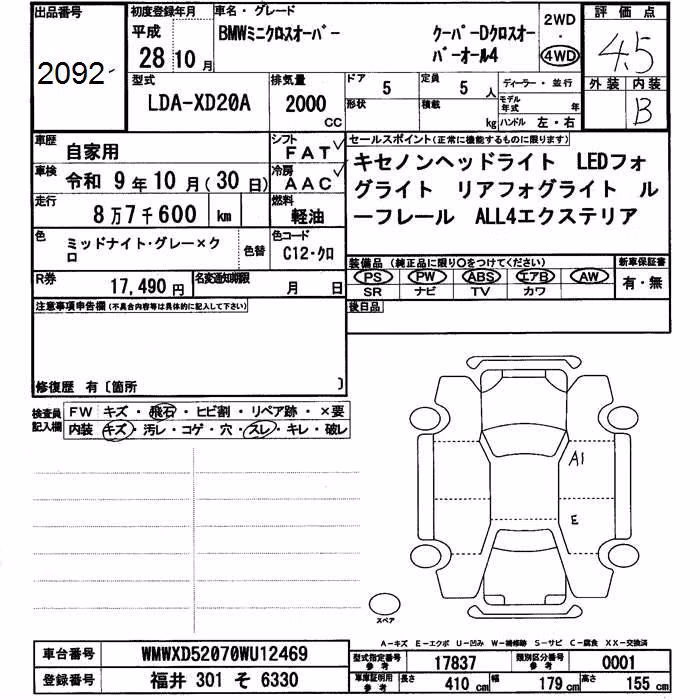 出品番号
2092
初度登録年月
平成
28 10月
車名・グレード
BMWミニクロスオーバー
クーパーDクロスオー
バーオール4
2WD
・
4WD
評価点
4.5
外装 内装
B
型式
LDA-XD20A
排気量
2000
CC
ドア
5
定員
5 人
形状
積載
kg
ディーラー・並行
モデル年式 年
ハンドル 左・右
車歴
自家用
シフト
FAT
車検
令和 9年10月(30日)
冷房
AAC
走行
8万7千600 km
燃料
軽油
色
ミッドナイト・グレー×ク
ロ
色替
色コード
C12・クロ
R券
17,490円
名変通知期限
月 日
セールスポイント(正常に機能するものに限ります)
キセノンヘッドライト LEDフォ
グライト リアフォグライト ル
ーフレール ALL4エクステリア
装備品(純正品に限り○をつけてください)
PS PW ABS エアB AW
SR ナビ TV カワ
新車保証書
有・無
後日品
注意事項申告欄(不具合内容等は具体的に記入して下さい)
修復歴 有〔箇所 〕
検査員
記入欄
FW キズ・飛石・ヒビ割・リペア跡・×要
内装 キズ・汚レ・コゲ・穴・スレ・キレ・破レ
A1
E
スペア
A-キズ E-エクボ U-凹み W-補修跡 S-サビ C-腐食 XX-交換済
車台番号
WMWXD52070WU12469
登録番号
福井 301 そ 6330
型式指定番号
参考
17837
類別区分番号
参考
0001
車庫証明用
参考
長さ
410 cm
幅
179 cm
高さ
155 cm